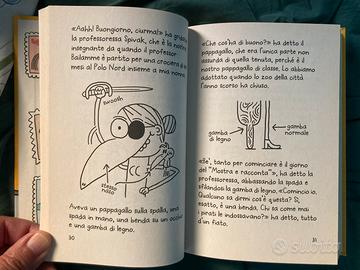 «Aahh! Buongiorno, ciurma!» ha gridato
la professoressa Spivak, che è la nostra
insegnante da quando il professor
Bailamme è partito per una crociera di
mesi al Polo Nord insieme a mia nonna.
swoosh
stesso
naso
Aveva un pappagallo sulla spalla, una
spada in mano, una benda su un occhio
e una gamba di legno.
30
«Che cos'ha di buono?» ha detto il
pappagallo, che era l'unica parte non
assurda di quella tenuta, perché è il
nostro pappagallo di classe. Lo abbiamo
adottato quando lo zoo della città
l'anno scorso ha chiuso.
gamba
di legno
gamba
normale
tanto per cominciare è il giorno
del "Mostra e racconta"», ha detto la
professoressa, abbassando la spada e
sfilandosi la gamba di legno. «Comincio io.
Qualcuno sa dirmi cos'è questa? Sì,
esatto, è una benda. Chi sa come mai
i pirati le indossavano?» ha detto, tutto
d'un fiato.
31
subito